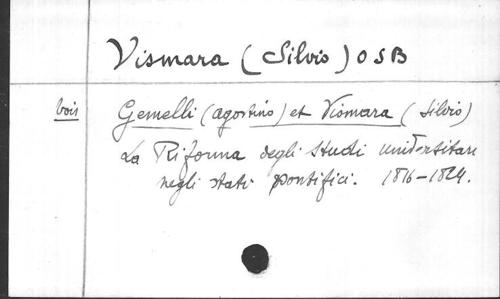 Vismara (Silvio) OSB
voir Gemelli (agostino) et Vismara (Silvio)
La Riforma degli studi universitari
negli stati pontifici. 1816-1824.